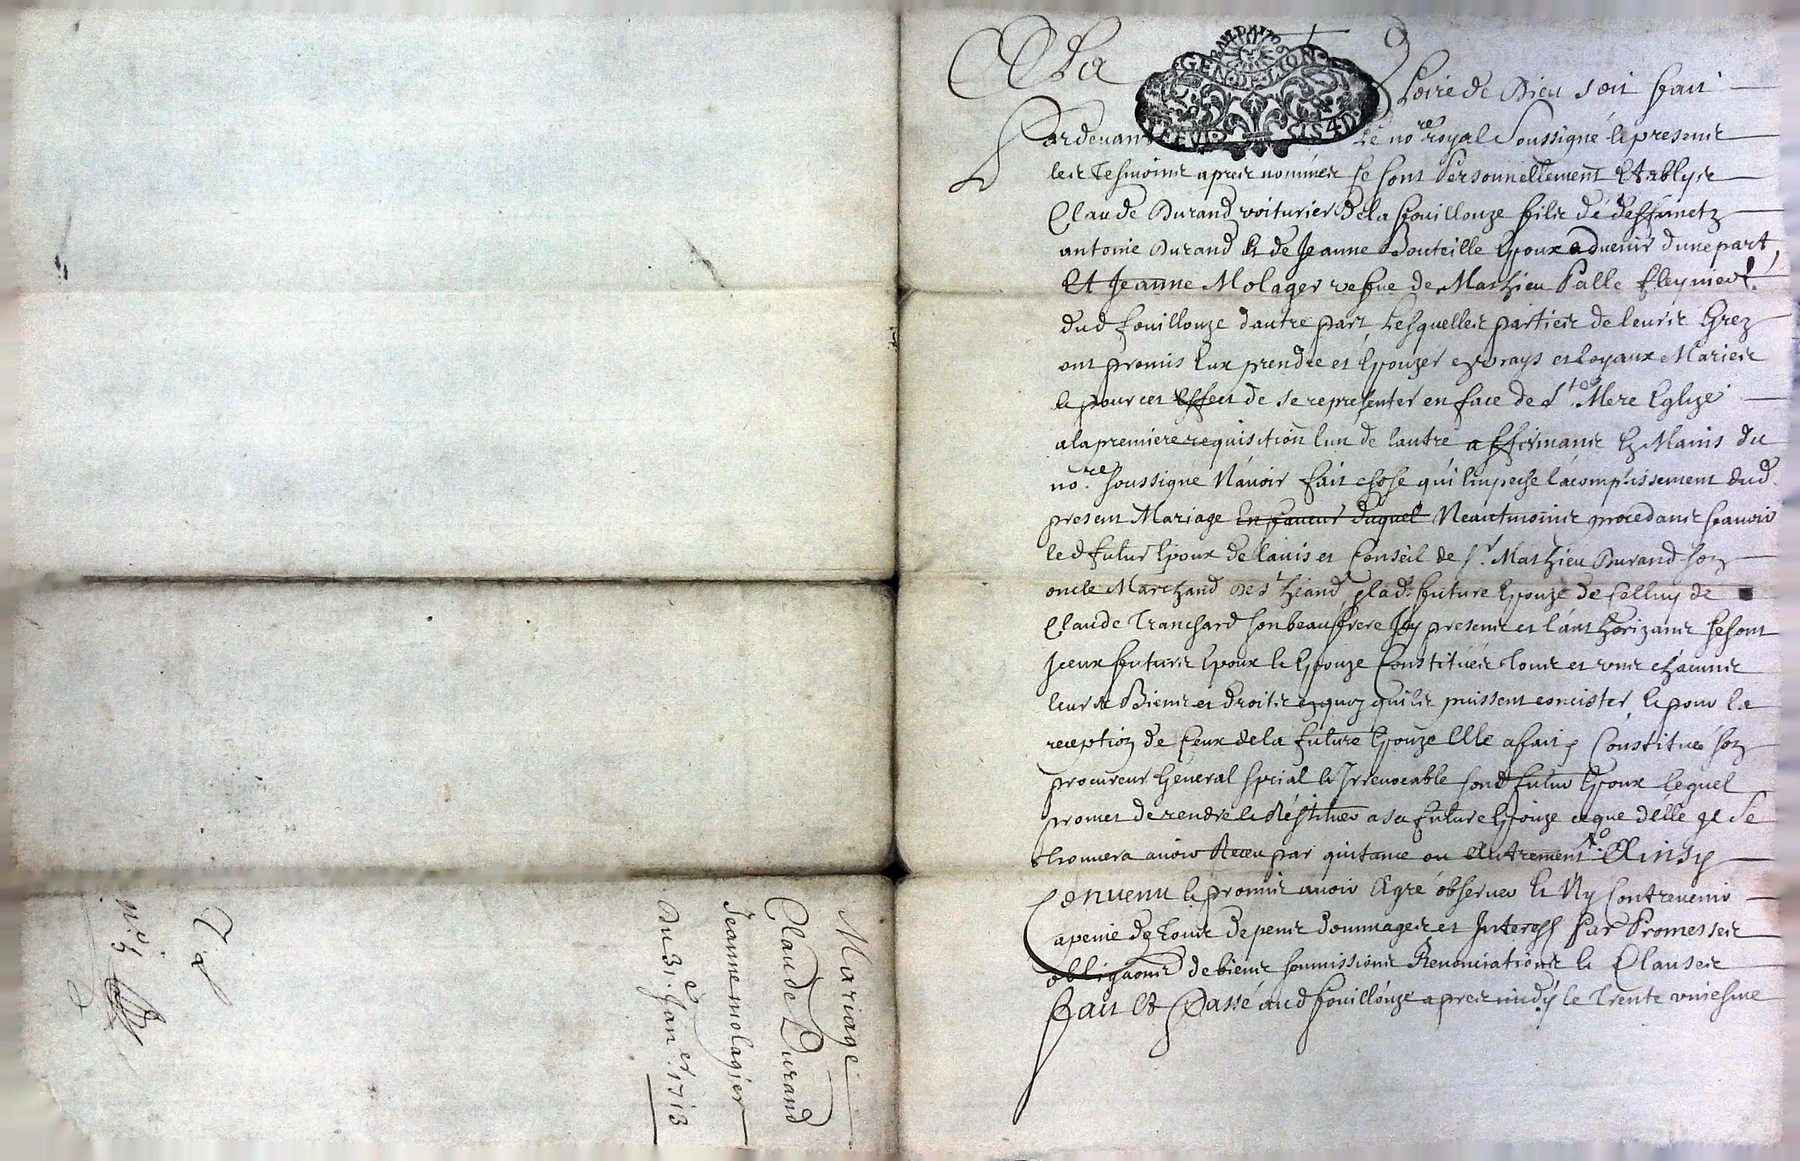 A La gloire de Dieu soit fait
Pardeuant Le no.re royal Soussigne le presents
les tesmoins apres nommés se sont Personnellement Establys
Claude Durand voiturier de la fouillouze filz de deffunctz
antoine Durand et de Jeanne Bouteille Epoux aduenir dune part
Et Jeanne Molager vefue de Mathieu Palle
dud fouillouze dautre part Lesquelles parties de leurs Grez
ont promis Eux prendre et Epouzer en vrays et loyaux Maries
et pour cet Effect de se representer en face de S.te Mere Eglize
a la premiere requisition lun de lautre affirmants Es Mains du
no.re soussigne N'auoir fait chose qui Empeche lacomplissement dud.
present Mariage En faueur duquel Neantmoins procedants scauoir
led futur Epoux de lauis et Conseil de S.r Mathieu Durand son
oncle Marchand de S.t heand et lad. future Epouze de Celluy de
Claude Tranchard son beaufrere Icy present et lauthorizant se sont
Iceux futurs Epoux et Epouze Constitués tous et vns chacuns
leurs Biens et droits en quoy quils puissent concister et pour la
reception de Ceux de la future Epouze Elle a fait et Constitué son
procureur General special et Irreuocable sond futur Epoux lequel
promet de rendre et Restituer a sa future Epouze ce que delle Il se
trouuera auoir Receu par quitance ou Autrement Ainsy
Conuenu et promis auoir Agré obseruer et Ny Contreuenir
a peine de tous depens dommages et Interests par Promesses
obligaons de biens soumissions Renonciations et Clauses
fait Et Passé aud fouillouze apres midy le Trente vniesme
Mariage
Claude Durand
Jeanne molagier
Du 31.e Jan.er 1713
n.o 5